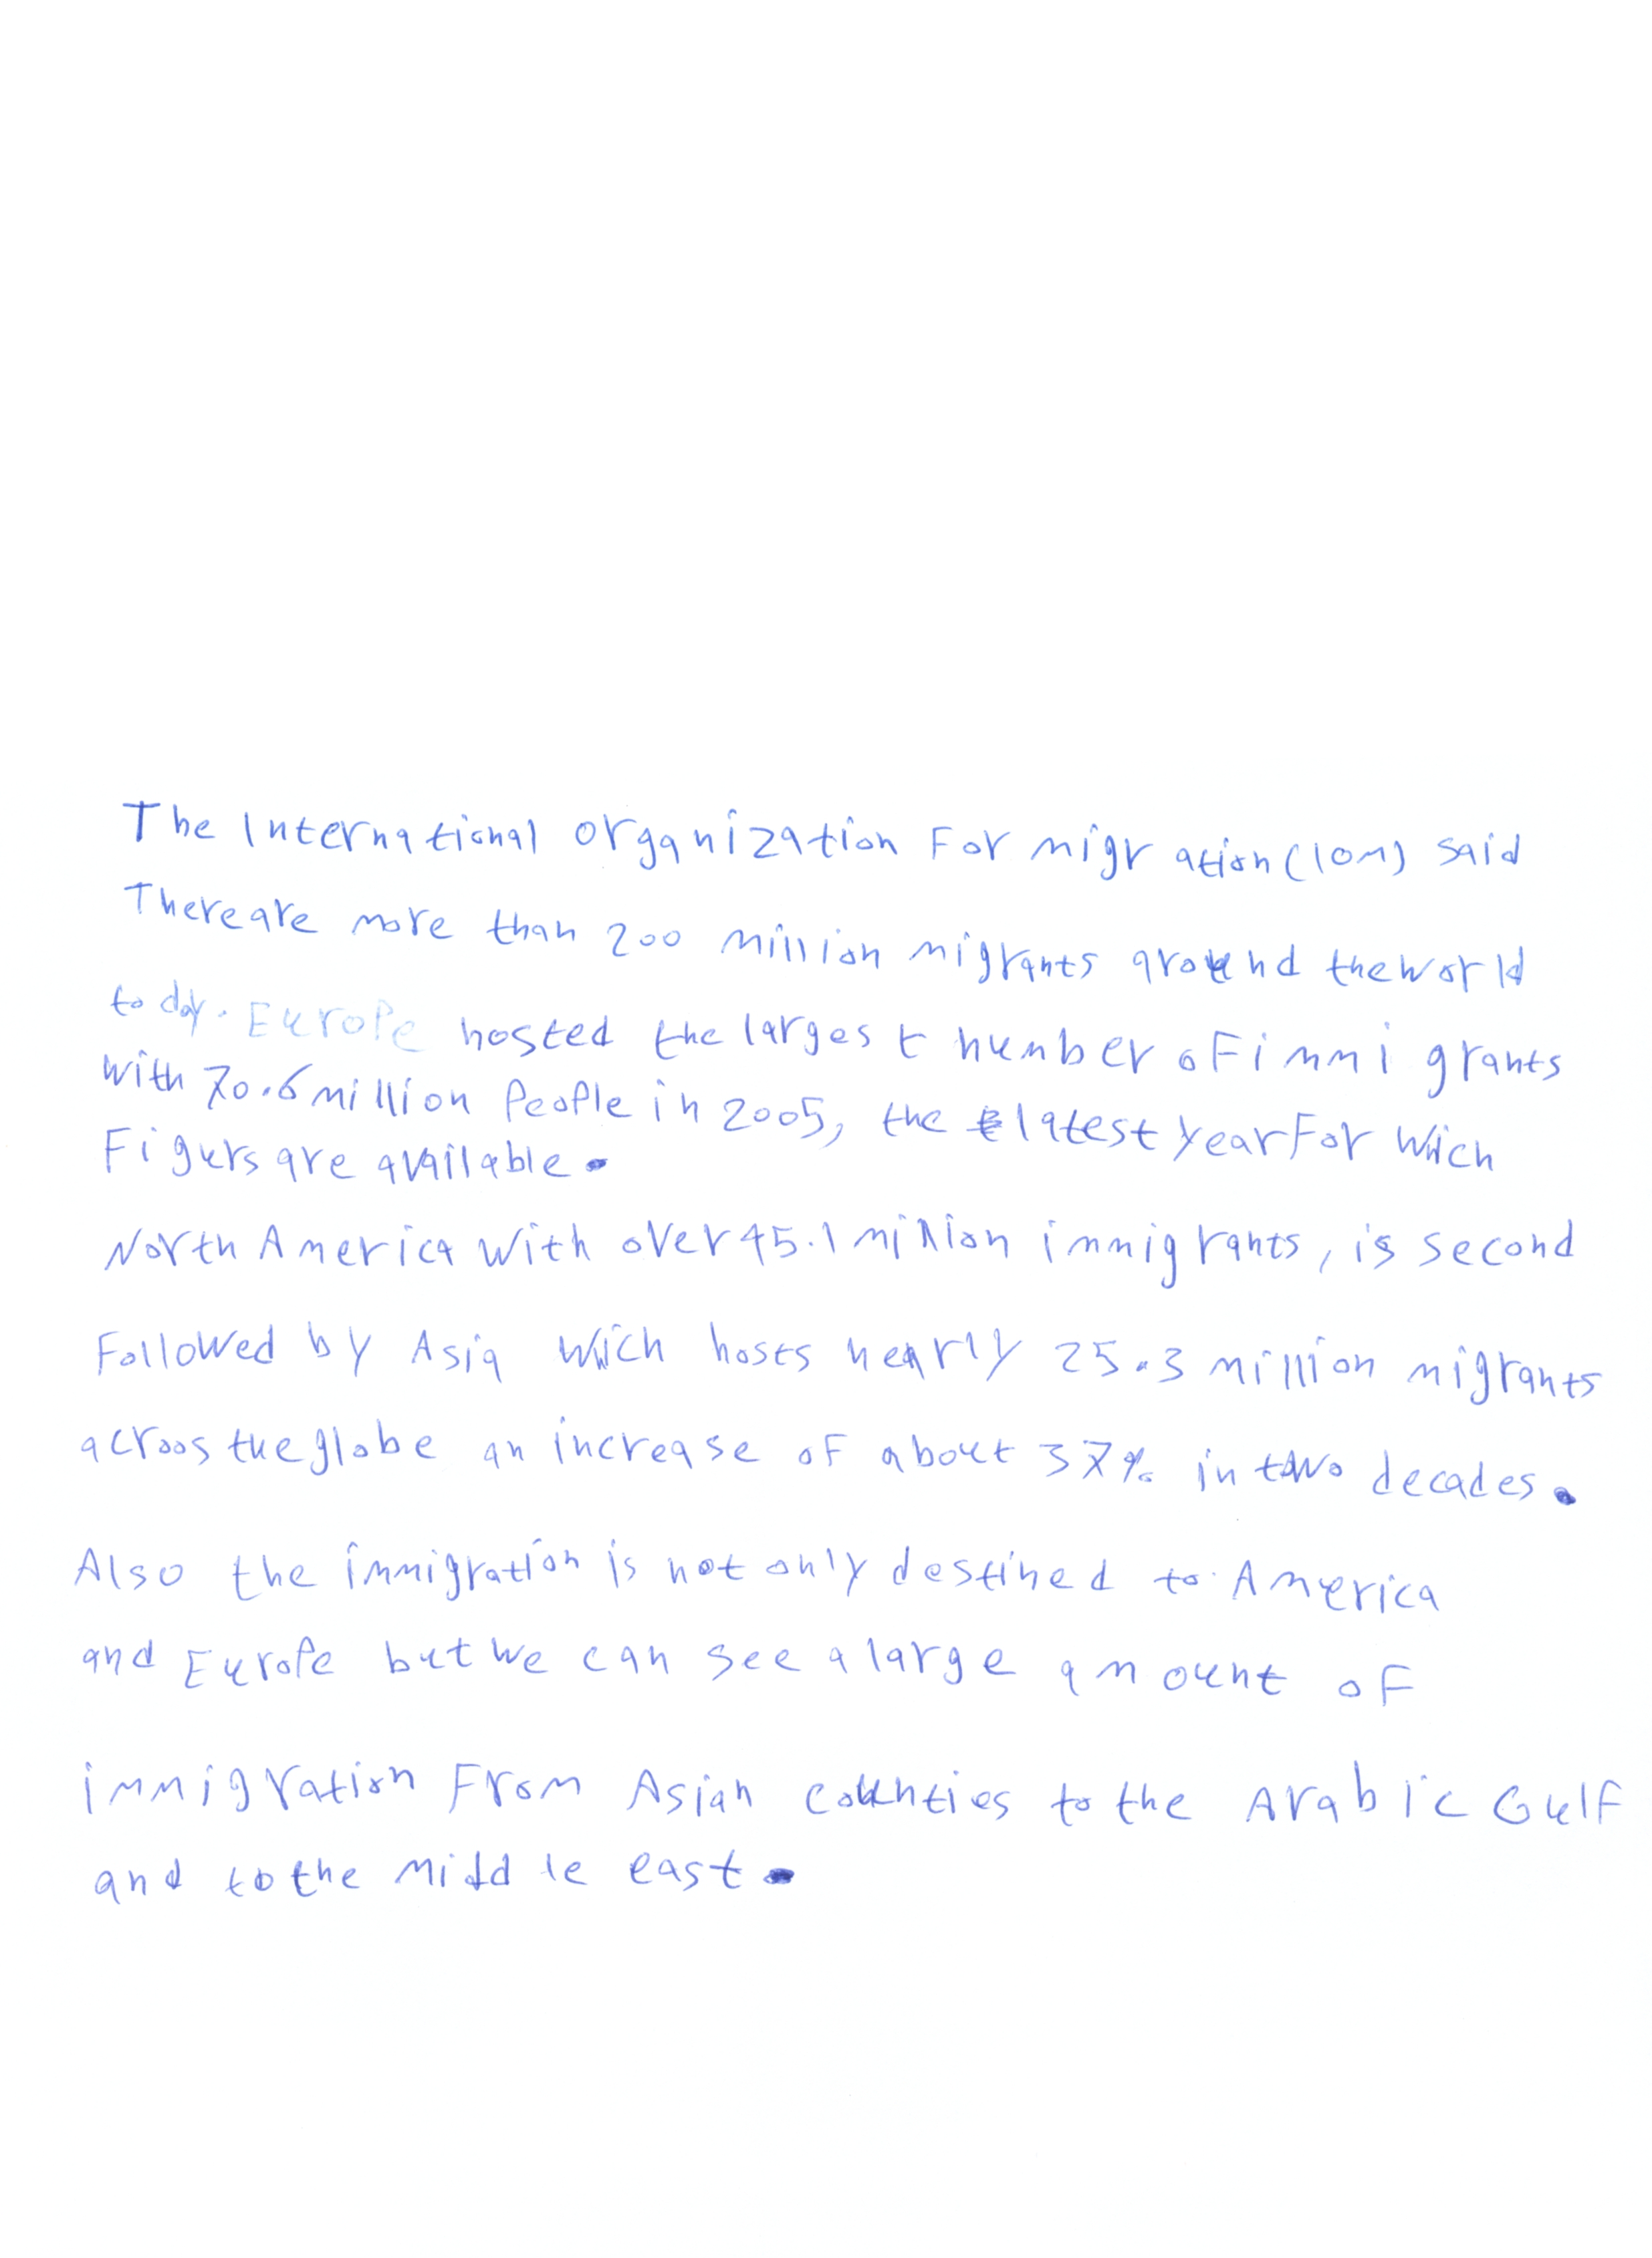 The International organization For migration (IOM) said
There are more than 200 million migrants around the world
today. Europe hosted the largest number of immigrants
with 70.6 million People in 2005, the latest year For Wich
Figurs are available.
North America with over 45.1 million immigrants, is second
Followed by Asia Wich hosts nearly 25.3 million migrants
acroos the globe an increase of about 37% in two decades.
Also the immigration is not only destined to America
and Europe but we can see a large amount of
immigration From Asian counties to the Arabic Gulf
and to the Middle east.